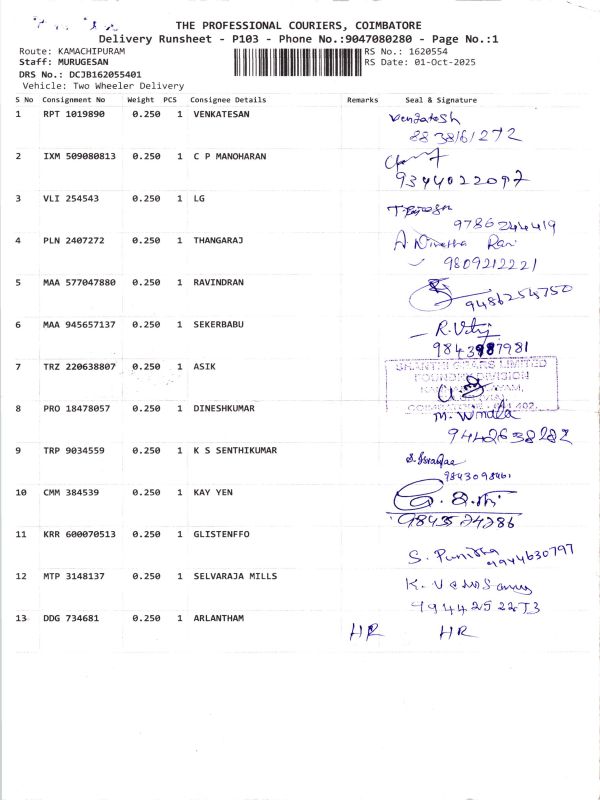 THE PROFESSIONAL COURIERS, COIMBATORE
Delivery Runsheet - P103 - Phone No.:9047080280 - Page No.:1
Route: KAMACHIPURAM RS No.: 1620554
Staff: MURUGESAN RS Date: 01-Oct-2025
DRS No.: DCJB162055401
Vehicle: Two Wheeler Delivery
S No Consignment No Weight PCS Consignee Details Remarks Seal & Signature
1 RPT 1019890 0.250 1 VENKATESAN Vengatesh
2 IXM 509080813 0.250 1 C P MANOHARAN
9344022097
3 VLI 254543 0.250 1 LG
9786244419
4 PLN 2407272 0.250 1 THANGARAJ A
9809212221
5 MAA 577047880 0.250 1 RAVINDRAN
9486254750
6 MAA 945657137 0.250 1 SEKERBABU
7 TRZ 220638807 0.250 1 ASIK SHANTHI GEARS LIMITED
FOUNDRY DIVISION
COIMBATORE - 641 402.
8 PRO 18478057 0.250 1 DINESHKUMAR M.
9442638282
9 TRP 9034559 0.250 1 K S SENTHIKUMAR
10 CMM 384539 0.250 1 KAY YEN
11 KRR 600070513 0.250 1 GLISTENFFO
S. Punitha 9944630797
12 MTP 3148137 0.250 1 SELVARAJA MILLS K.
13 DDG 734681 0.250 1 ARLANTHAM
HR HR